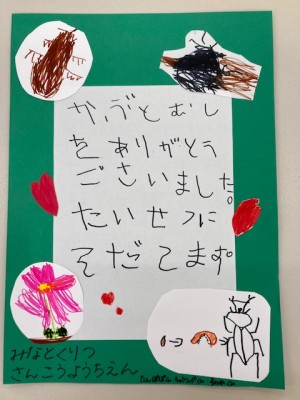 かぶとむし
をありがとう
ございました。
たいせつに
そだてます。
みなとくりつ
さんこうようちえん